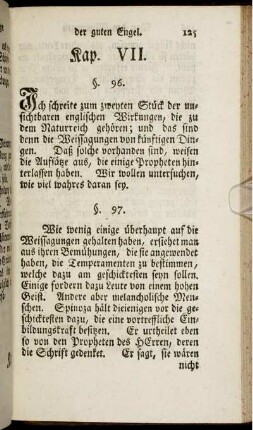 der guten Engel. 125
Kap. VII.
§. 96.
Ich schreite zum zweyten Stück der un-
sichtbaren englischen Wirkungen, die zu
dem Naturreich gehören; und das sind
denn die Weissagungen von künftigen Din-
gen. Daß solche vorhanden sind, weisen
die Aufsätze aus, die einige Propheten hin-
terlassen haben. Wir wollen untersuchen,
wie viel wahres daran sey.
§. 97.
Wie wenig einige überhaupt auf die
Weissagungen gehalten haben, ersiehet man
aus ihren Bemühungen, die sie angewendet
haben, die Temperamenten zu bestimmen,
welche dazu am geschicktesten seyn sollen.
Einige fordern dazu Leute von einem hohen
Geist. Andere aber melancholische Men-
schen. Spinoza hält diejenigen vor die ge-
schicktesten dazu, die eine vortrefliche Ein-
bildungskraft besitzen. Er urtheilet eben
so von den Propheten des HErren, deren
die Schrift gedenket. Er sagt, sie wären
nicht